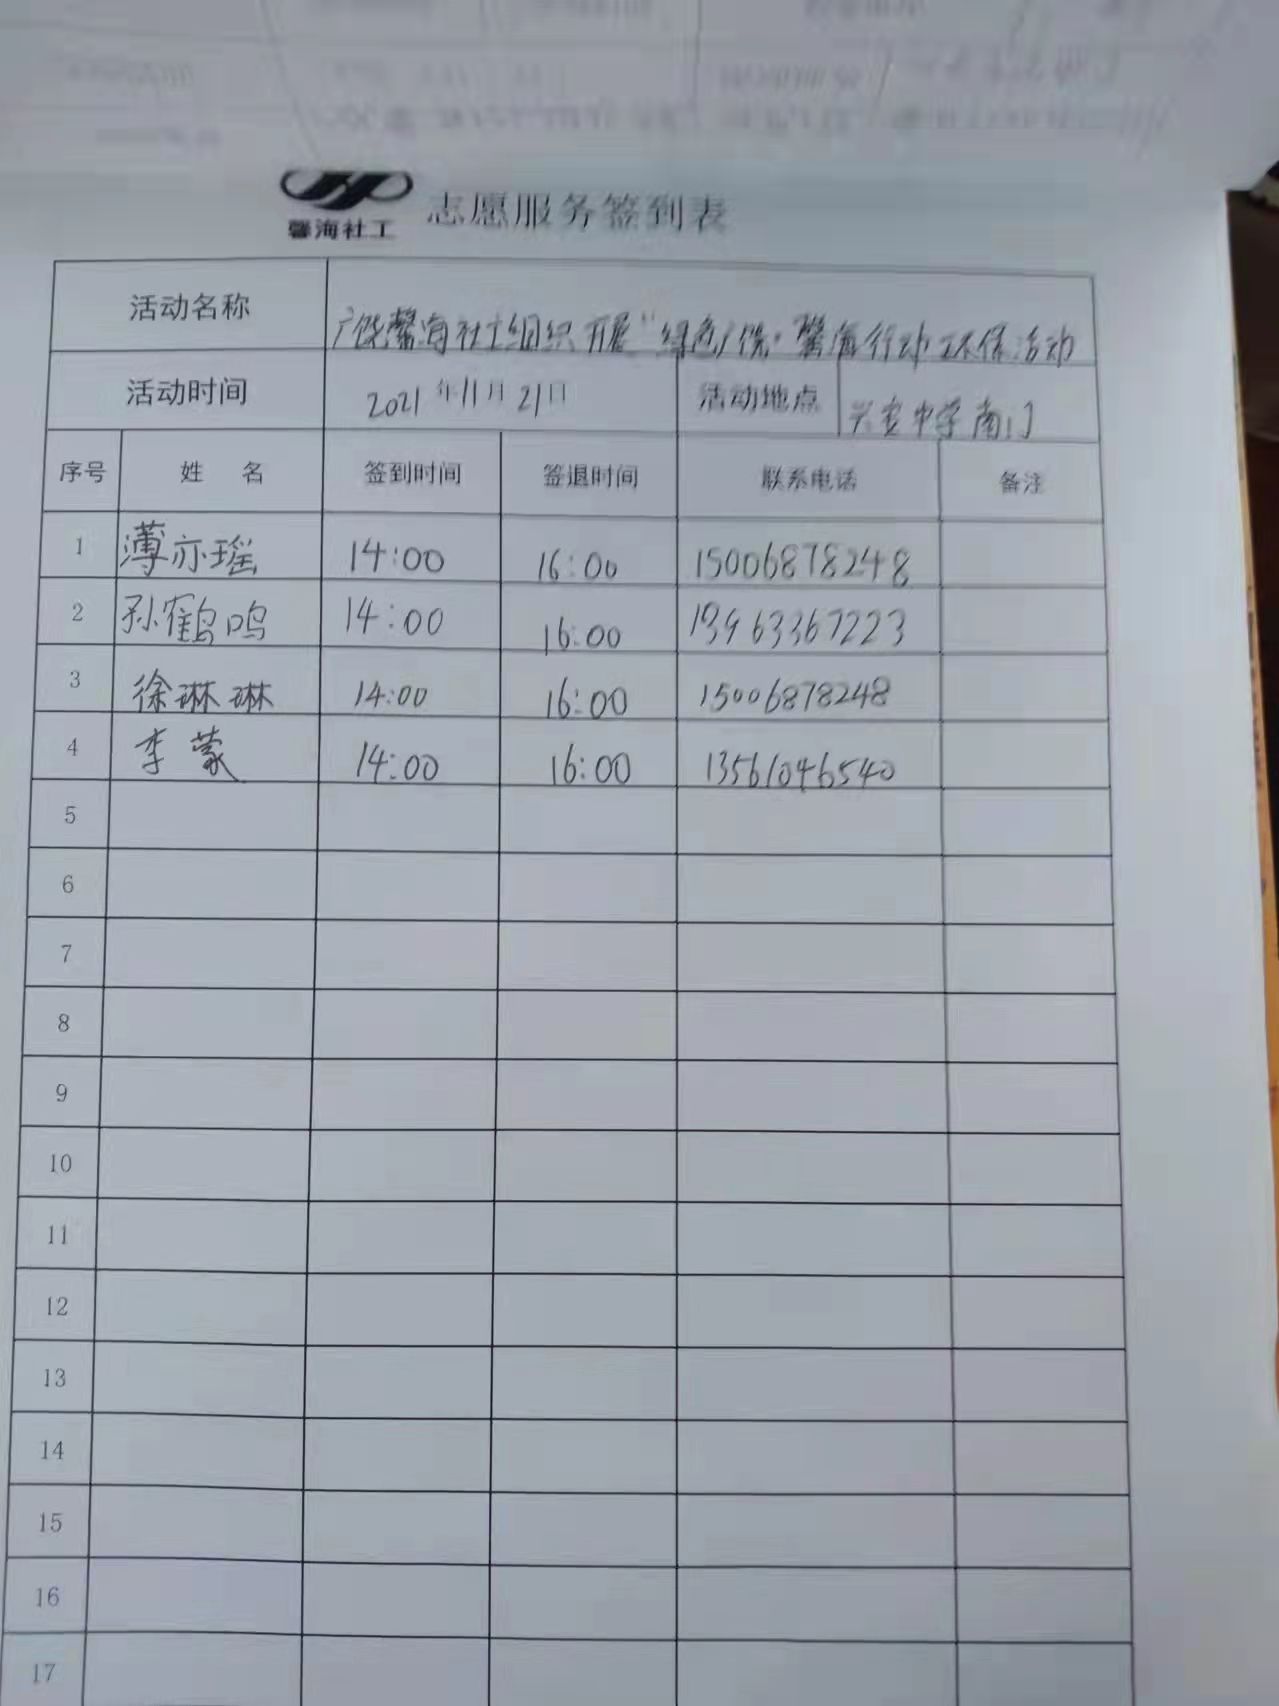 馨海社工 志愿服务签到表
活动名称 广饶馨海社工组织开展"绿色广饶·馨海行动环保活动
活动时间 2021年11月21日 活动地点 兴安中学南门
序号 姓 名 签到时间 签退时间 联系电话 备注
1 薄亦瑶 14:00 16:00 15006878248
2 孙鹤鸣 14:00 16:00 13963367223
3 徐琳琳 14:00 16:00 15006878248
4 李蒙 14:00 16:00 13561046540
5
6
7
8
9
10
11
12
13
14
15
16
17